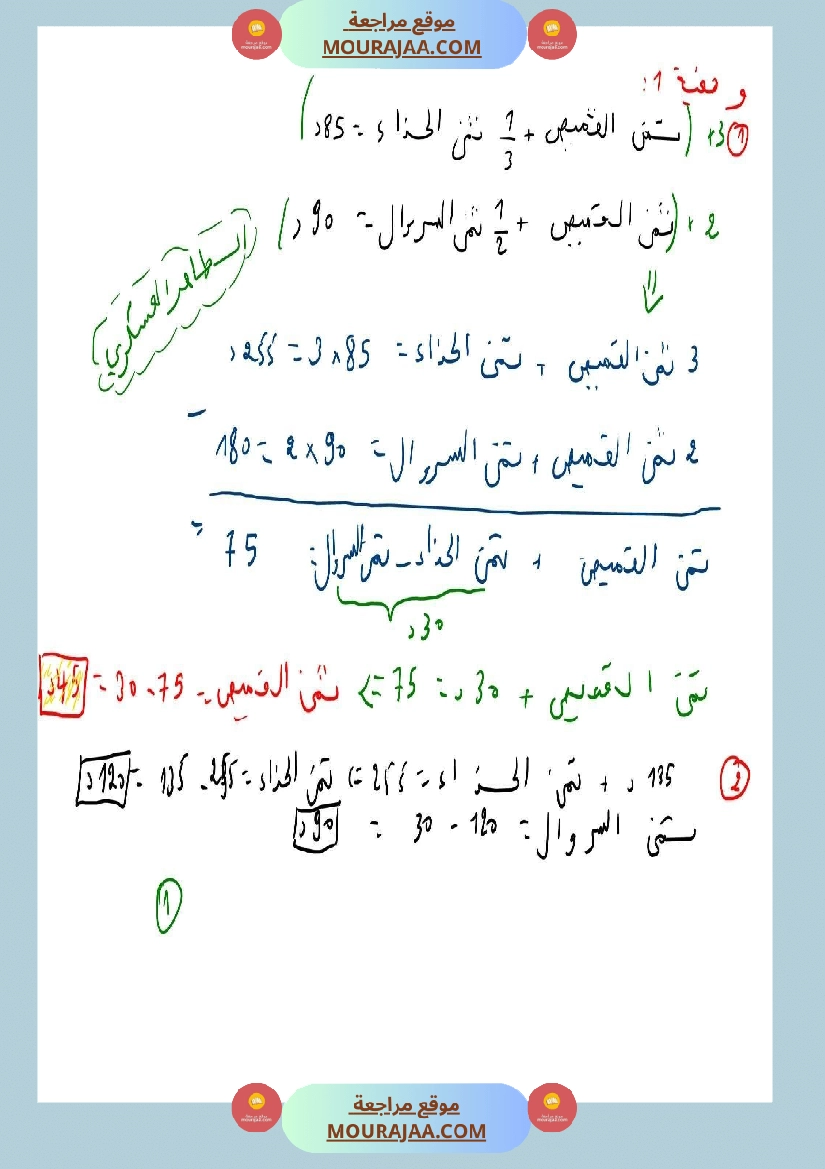 موقع مراجعة
MOURAJAA.COM
وضعية 1:
① 3× (ثمن القميص + 1/3 ثمن الحذاء = 85د)
2 × (ثمن القميص + 1/2 ثمن السروال = 90 د)
⇓
3 ثمن القميص + ثمن الحذاء = 85×3 = 255د
-
2 ثمن القميص + ثمن السروال = 90 × 2 = 180
=
ثمن القميص + ثمن الحذاء - ثمن السروال = 75
30د
ثمن القميص + 30 د = 75 => ثمن القميص = 75 - 30 = 45د
② 135 د + ثمن الحذاء = 255 => ثمن الحذاء = 255 - 135 = 120د
ثمن السروال = 120 - 30 = 90د
①
موقع مراجعة
MOURAJAA.COM